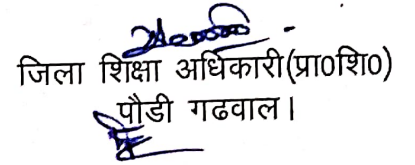 जिला शिक्षा अधिकारी(प्रा०शि०)
पौडी गढवाल।